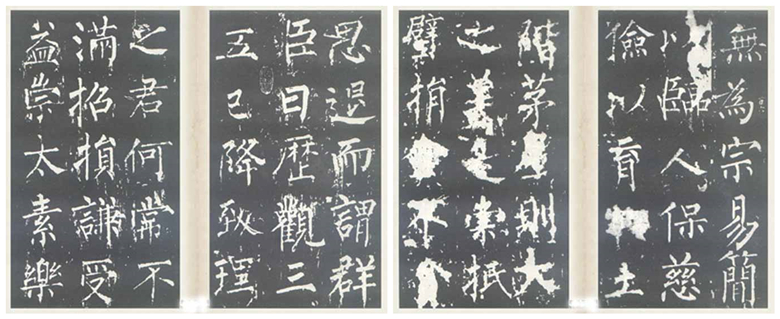 思退而謂群
臣曰歷觀三
五已降致理
之君何常不
滿招損謙受
益崇太素樂
無為宗易簡
以臨人保慈
儉以育土
階茅則大
之美崇抵
璧捐金不